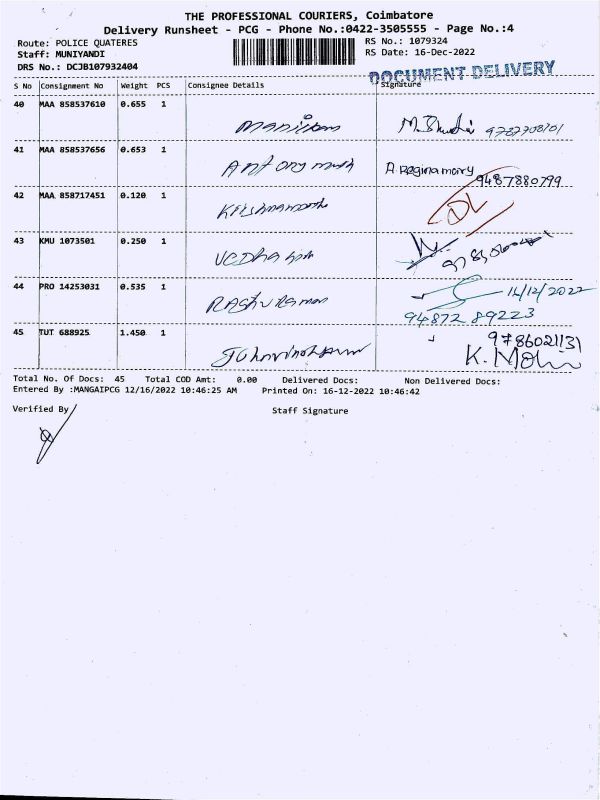 THE PROFESSIONAL COURIERS, Coimbatore
Delivery Runsheet - PCG - Phone No.:0422-3505555 - Page No.:4
Route: POLICE QUATERES
RS No.: 1079324
Staff: MUNIYANDI
RS Date: 16-Dec-2022
DRS No.: DCJB107932404
DOCUMENT DELIVERY
S No Consignment No Weight PCS Consignee Details Signature
40 MAA 858537610 0.655 1
41 MAA 858537656 0.653 1 Antony A. Reginamary 9487880799
42 MAA 858717451 0.120 1
43 KMU 1073501 0.250 1
44 PRO 14253031 0.535 1 Raghu Raman
94872 89223
45 TUT 688925 1.450 1 9786021131
K. Mohan
Total No. Of Docs: 45 Total COD Amt: 0.00 Delivered Docs: Non Delivered Docs:
Entered By :MANGAIPCG 12/16/2022 10:46:25 AM Printed On: 16-12-2022 10:46:42
Verified By Staff Signature